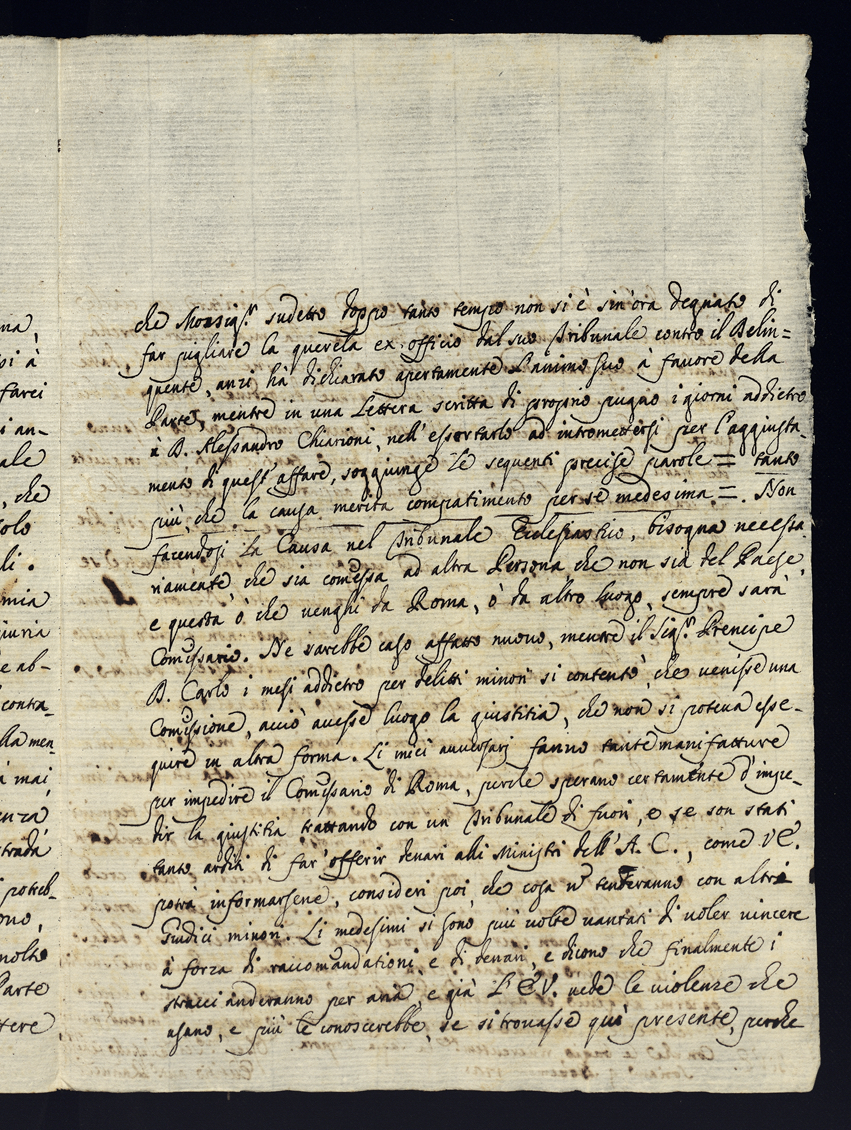 na,
si à
farei
i an-
ale
, che
solo
li.
mia
iuria
e ab-
contra-
lla men
à mai
enza
trada
i potreb-
ono,
molto
Parte
ttere
che Monsig.r sudetto doppo tanto tempo non si è sin'ora degnato di
far pigliare la querela ex officio dal suo Tribunale contro il Delin=
quente, anzi hà dichiarato apertamente l'animo suo à favore della
Parte, mentre in una Lettera scritta di proprio pugno i giorni addietro
à D. Alessandro Chiarioni, nell'essortarlo ad intromettersi per l'aggiusta-
mento di quest'affare, soggiunge le seguenti precise parole = tanto
più, che la causa merita compatimento per se medesima =. Non
facendosi la Causa nel Tribunale Ecclesiastico, bisogna necessa-
riamente che sia comessa ad altra Persona che non sia del Paese,
e questa ò che venghi da Roma, ò da altro luogo, sempre sarà
Comissario. Ne sarebbe caso affatto nuovo, mentre il Sig.r Prencipe
D. Carlo i mesi addietro per delitti minori si contentò, che venisse una
Comissione, acciò avesse luogo la giustitia, che non si poteva esse-
quire in altra forma. Li miei avversarj fanno tante manifatture
per impedire il Comissario di Roma, perche sperano certamente d'impe-
dir la giustitia trattando con un Tribunale di fuori, e se son stati
tanto arditi di far'offerir denari alli Ministri dell'A. C., come V.E.
potrà informarsene, consideri poi, che cosa n̄ tenteranno con altri
Giudici minori. Li medesimi si sono più volte vantati di voler vincere
à forza di raccomandationi, e di denari, e dicono che finalmente i
stracci anderanno per aria, e già L'E.V. vede le violenze che
usano, e più le conoscerebbe, se si trovasse quì presente, perche